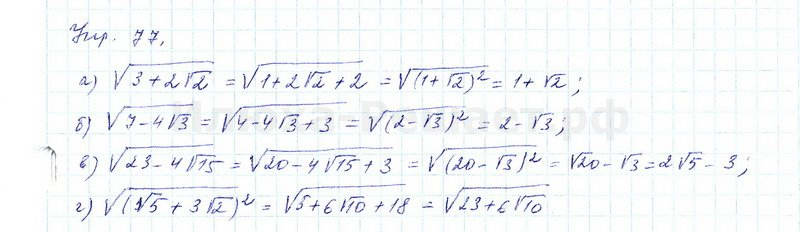 Упр. 77.
а) √(3+2√2) = √(1+2√2+2) = √((1+√2)²) = 1+√2;
б) √(7-4√3) = √(4-4√3+3) = √((2-√3)²) = 2-√3;
в) √(23-4√15) = √(20-4√15+3) = √((20-√3)²) = √20-√3 = 2√5-3;
г) √((√5+3√2)²) = √(5+6√10+18) = √(23+6√10)